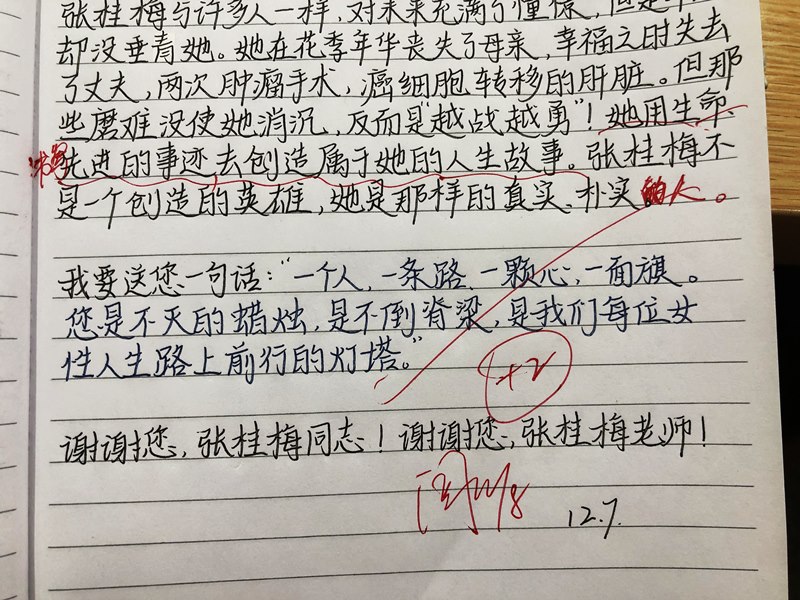 张桂梅与许多人一样，对未来充满了憧憬，但是
却没垂青她。她在花季年华丧失了母亲，幸福之时失去
了丈夫，两次肿瘤手术，癌细胞转移的肝脏。但那
些磨难没使她消沉，反而是“越战越勇”！她用生命
先进的事迹去创造属于她的人生故事。张桂梅不
是一个创造的英雄，她是那样的真实、朴实的人。
我要送您一句话：“一个人，一条路，一颗心，一面旗。
您是不灭的蜡烛，是不倒脊梁，是我们每位女
性人生路上前行的灯塔。”
+2
谢谢您，张桂梅同志！谢谢您，张桂梅老师！
阅
12.7.